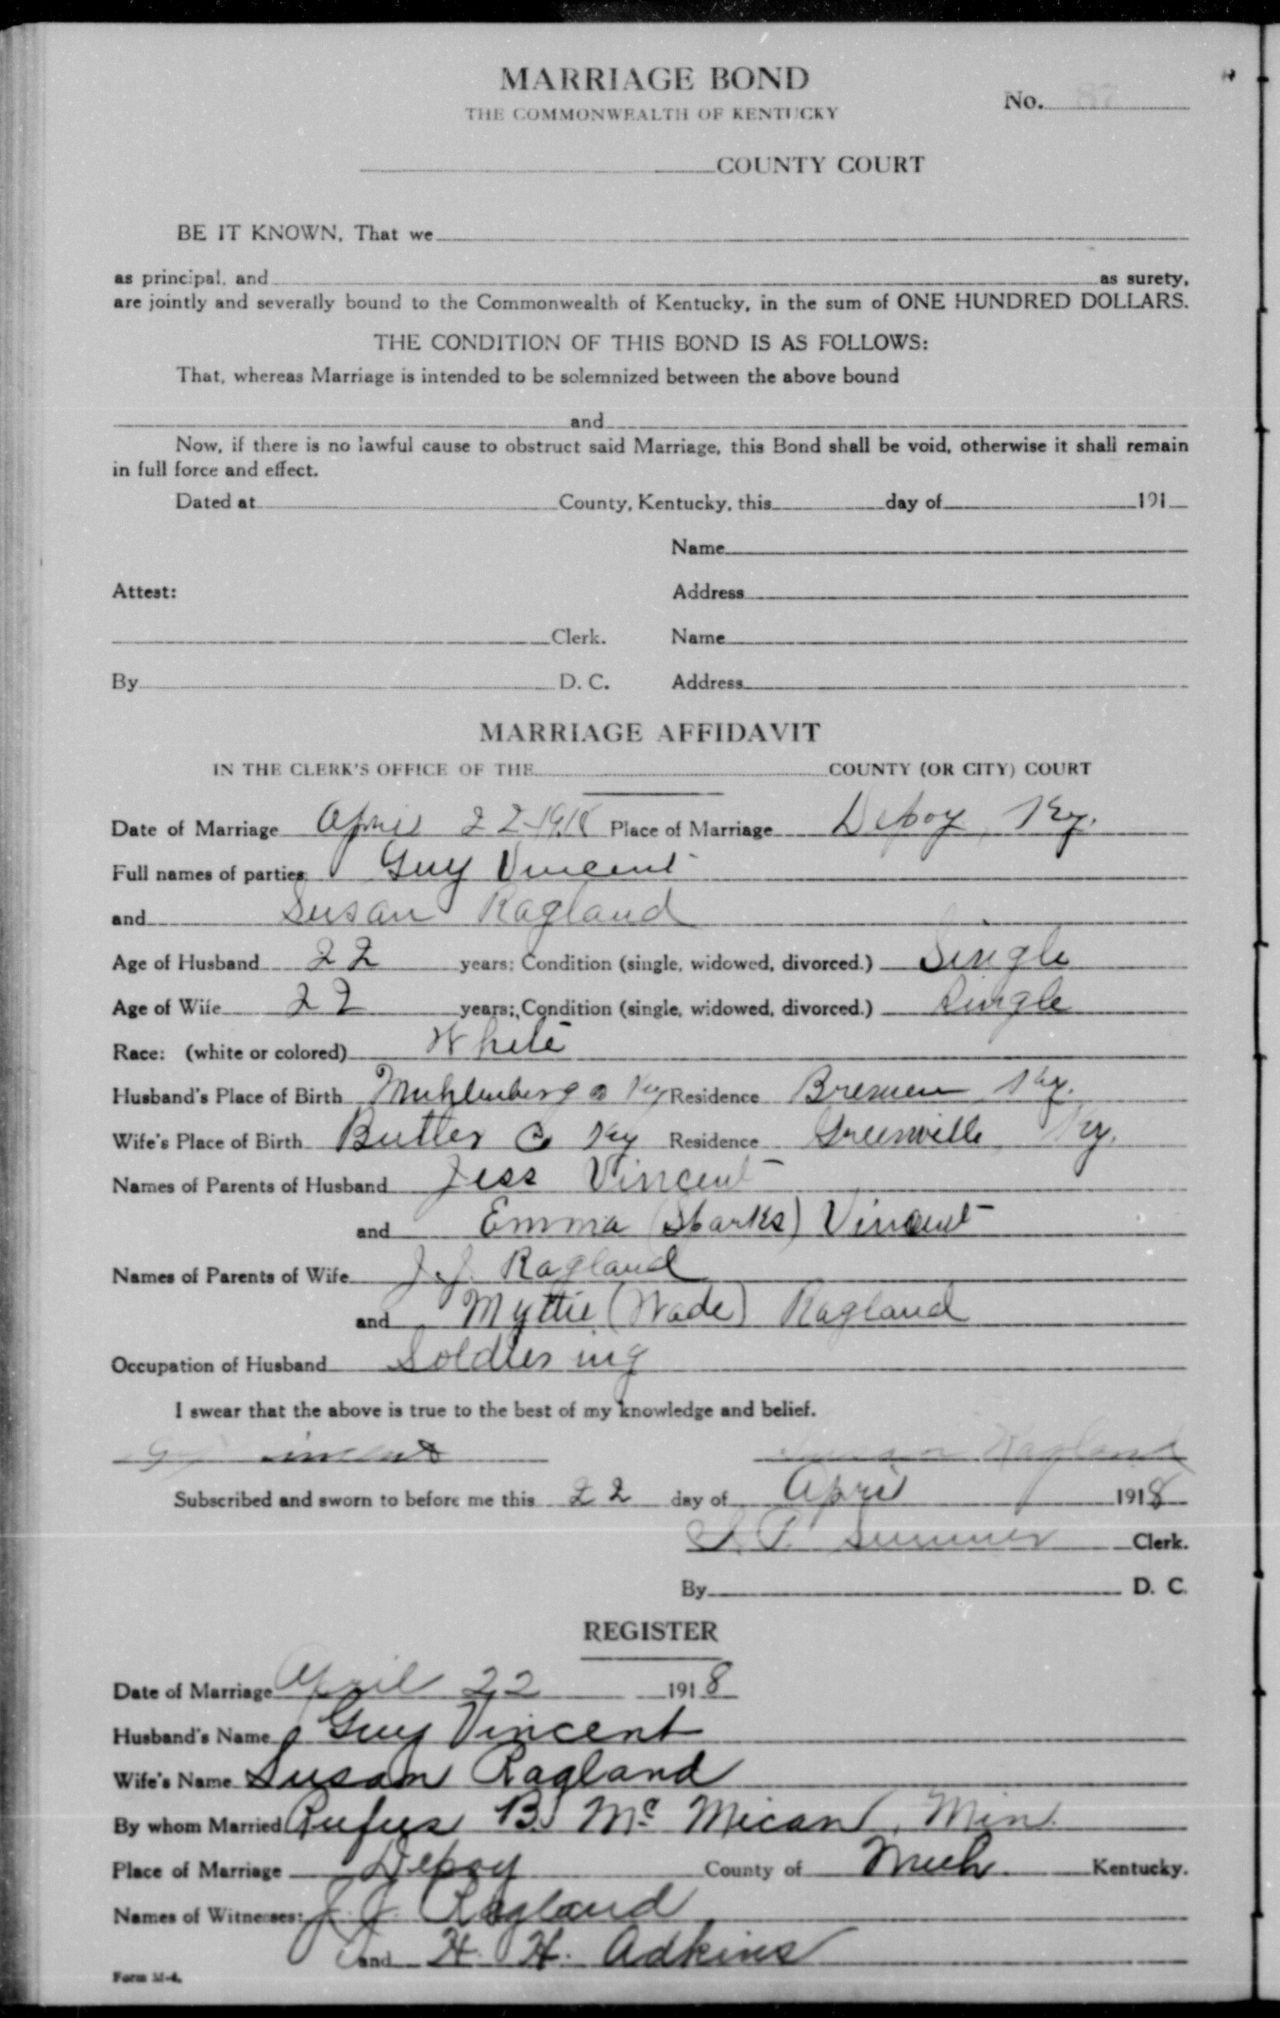 MARRIAGE BOND
No. 87
THE COMMONWEALTH OF KENTUCKY
COUNTY COURT
BE IT KNOWN, That we
as principal, and as surety,
are jointly and severally bound to the Commonwealth of Kentucky, in the sum of ONE HUNDRED DOLLARS.
THE CONDITION OF THIS BOND IS AS FOLLOWS:
That, whereas Marriage is intended to be solemnized between the above bound
and
Now, if there is no lawful cause to obstruct said Marriage, this Bond shall be void, otherwise it shall remain
in full force and effect.
Dated at County, Kentucky, this day of 191
Name
Attest: Address
Clerk. Name
By D. C. Address
MARRIAGE AFFIDAVIT
IN THE CLERK'S OFFICE OF THE COUNTY (OR CITY) COURT
Date of Marriage April 22-1918 Place of Marriage Depoy, Ky.
Full names of parties Guy Vincent
and Susan Ragland
Age of Husband 22 years; Condition (single, widowed, divorced.) Single
Age of Wife 22 years; Condition (single, widowed, divorced.) Single
Race: (white or colored) White
Husband's Place of Birth Muhlenberg Co Ky Residence Bremen, Ky.
Wife's Place of Birth Butler Co Ky Residence Greenville, Ky.
Names of Parents of Husband Jess Vincent
and Emma (Sparks) Vincent
Names of Parents of Wife J. J. Ragland
and Myttie (Wade) Ragland
Occupation of Husband Soldiering
I swear that the above is true to the best of my knowledge and belief.
Guy Vincent Susan Ragland
Subscribed and sworn to before me this 22 day of April 1918
Summer Clerk.
By D. C.
REGISTER
Date of Marriage April 22 1918
Husband's Name Guy Vincent
Wife's Name Susan Ragland
By whom Married Rufus B. Mc Mican, Min.
Place of Marriage Depoy County of Muh. Kentucky.
Names of Witnesses: J. J. Ragland
and H. H. Adkins
Form M-4.